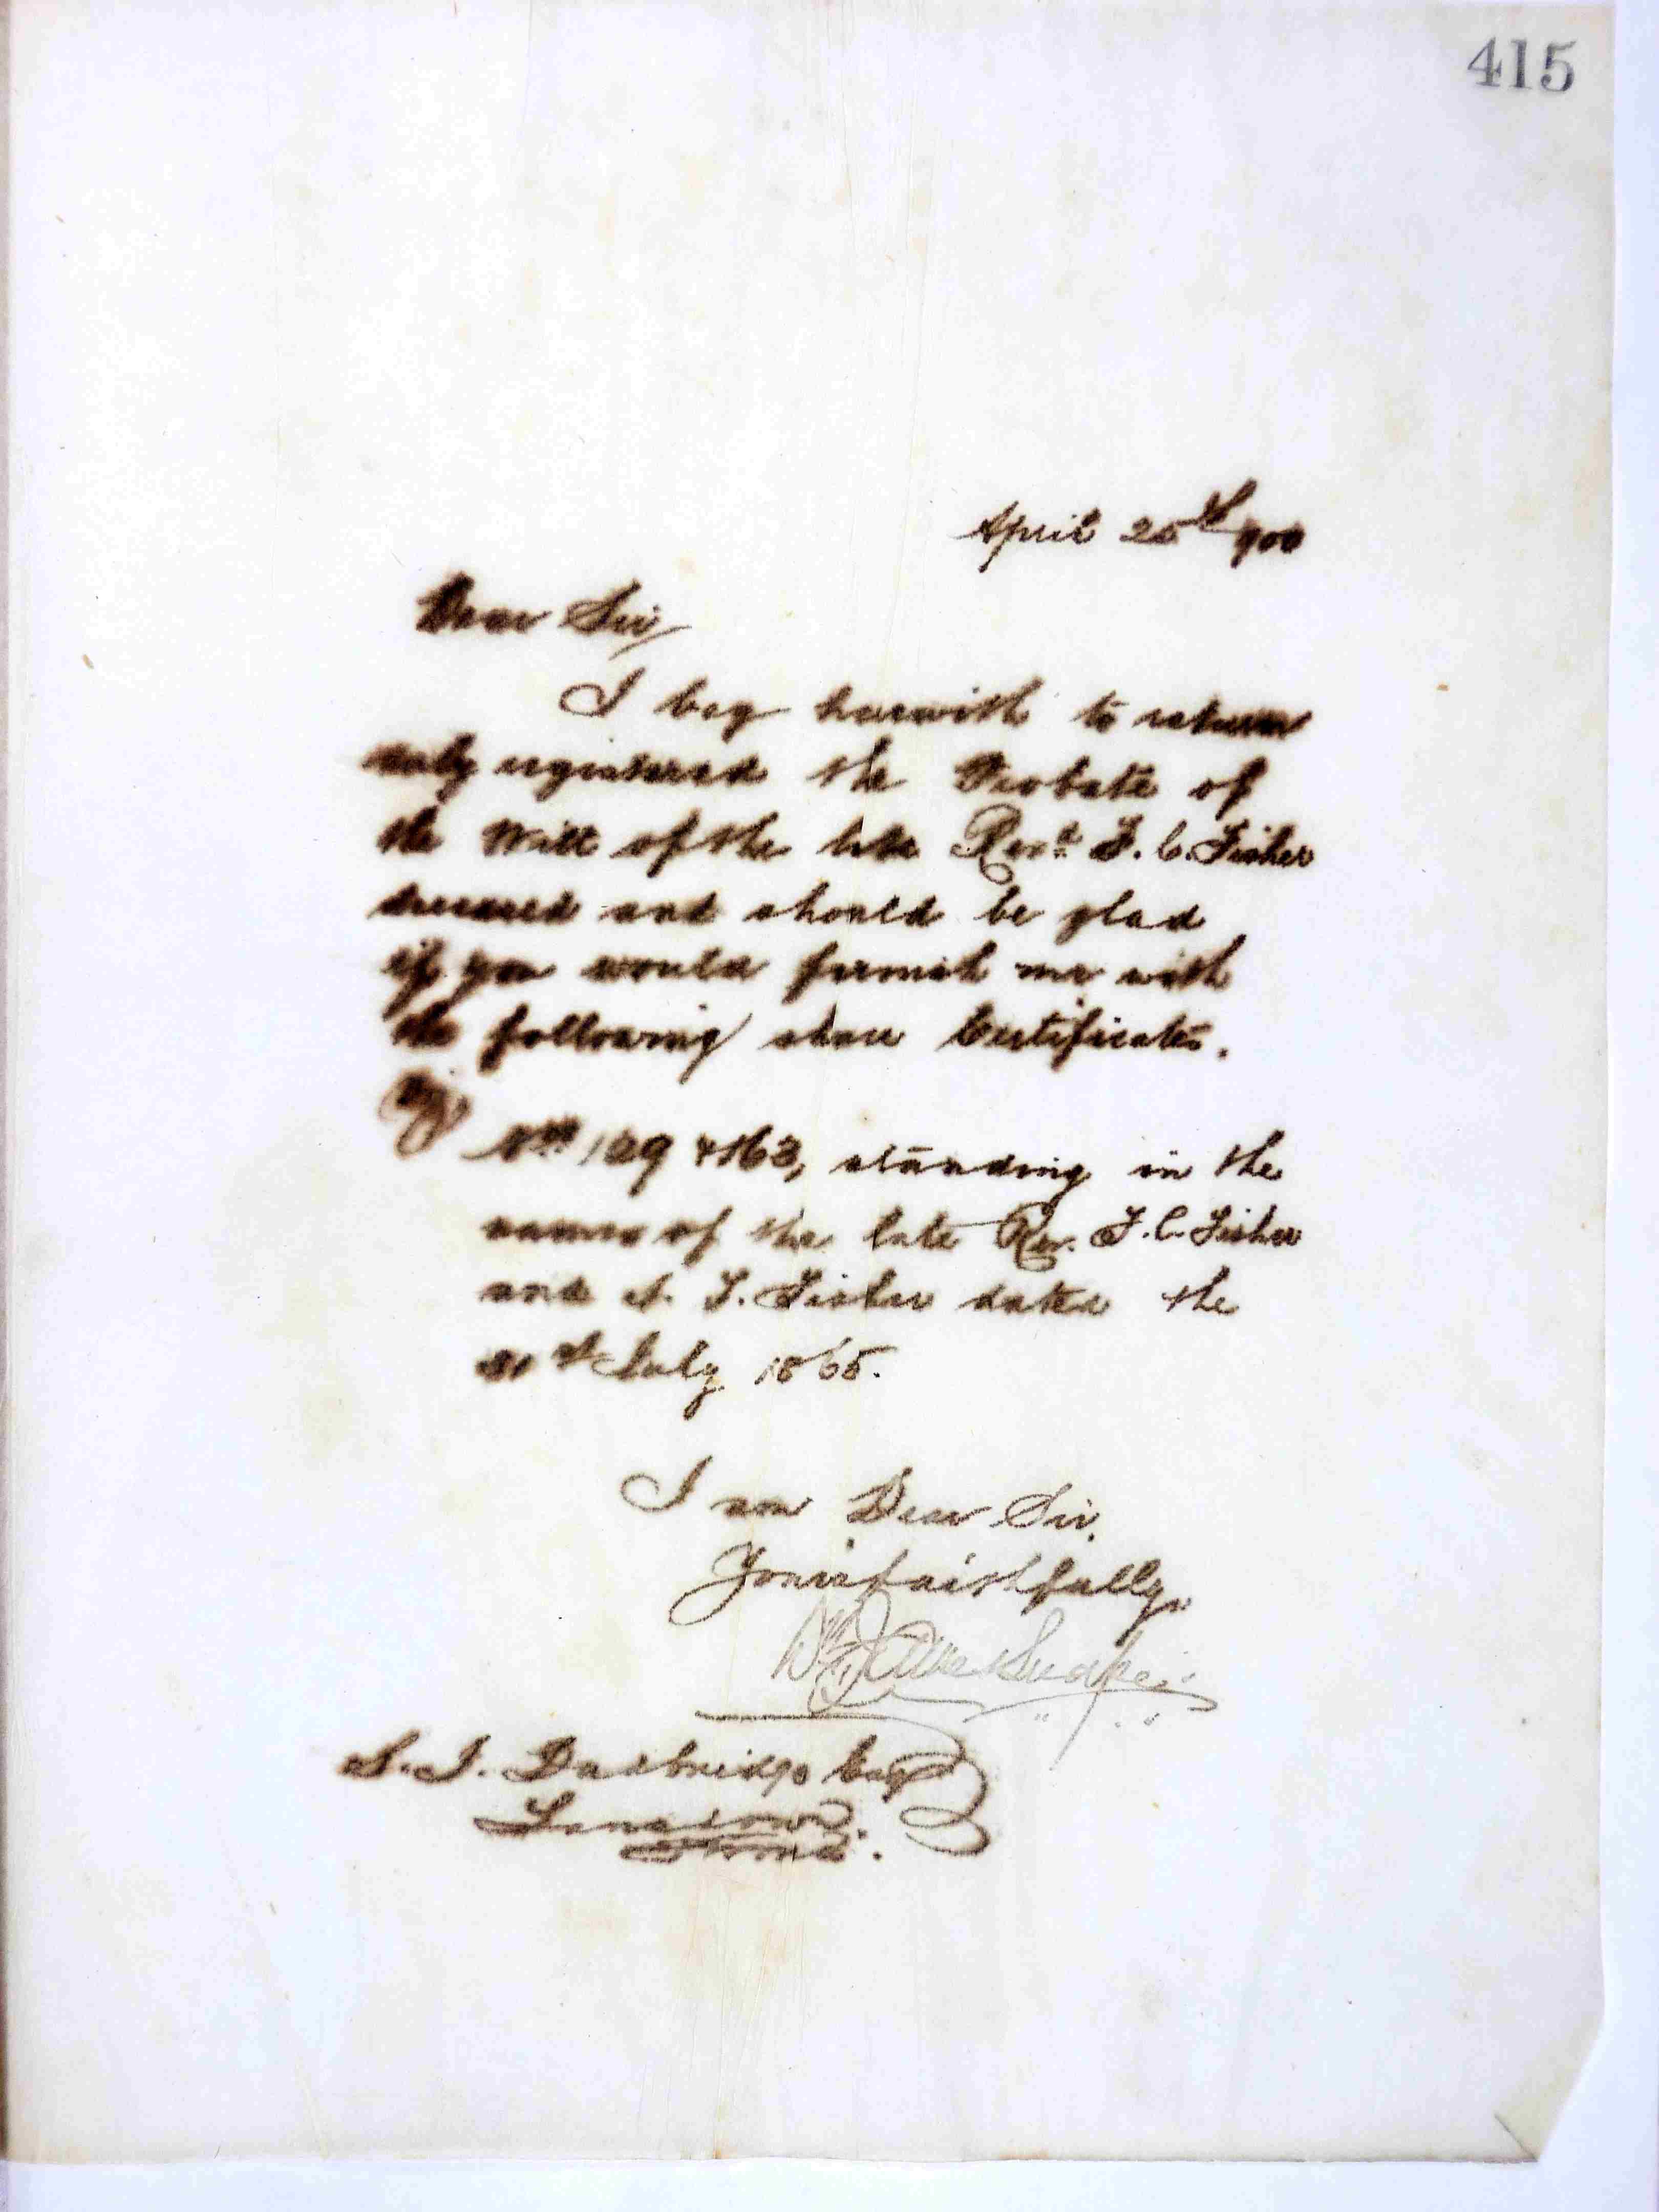 415
April 25th 900
Dear Sir,
I beg herewith to return
duly registered the Probate of
the Will of the late Revd. F. C. Fisher
deceased and should be glad
if you would furnish me with
the following share Certificates.
Viz
Nos 129 & 163, standing in the
names of the late Rev. F. C. Fisher
and A. F. Fisher dated the
31st July 1865.
I am Dear Sir,
Yours faithfully,
S. J. Dasbridge Esq